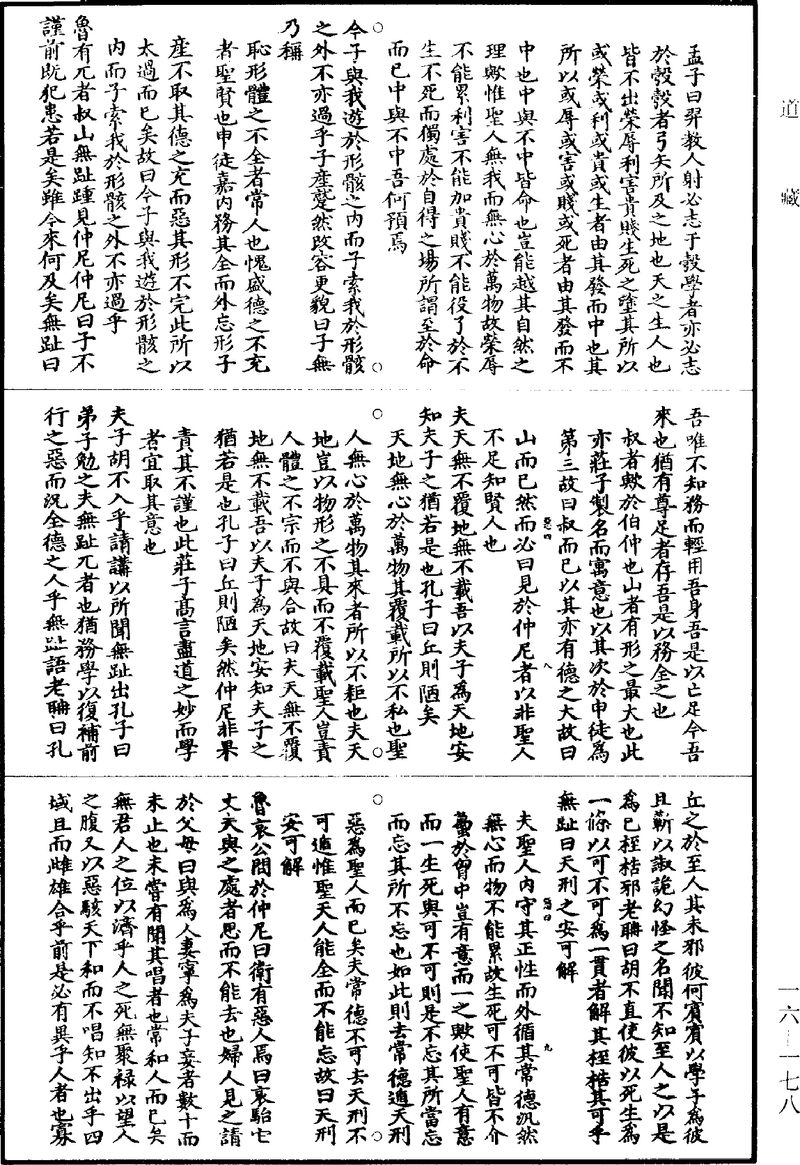 道藏
孟子曰羿教人射必志于彀學者亦必志
於彀彀者弓矢所及之地也天之生人也
皆不出榮辱利害貴賤生死之塗其所以
或榮或利或貴或生者由其發而中也其
所以或辱或害或賤或死者由其發而不
中也中與不中皆命也豈能越其自然之
理歟惟聖人無我而無心於萬物故榮辱
不能累利害不能加貴賤不能役了於不
生不死而獨處於自得之場所謂至於命
而已中與不中吾何預焉
今子與我遊於形骸之内而子索我於形骸
之外不亦過乎子產蹵然改容更貌曰子無
乃稱
恥形體之不全者常人也愧盛德之不充
者聖賢也申徒嘉内務其全而外忘形子
產不取其德之充而惡其形不完此所以
太過而已矣故曰今子與我遊於形骸之
内而子索我於形骸之外不亦過乎
魯有兀者叔山無趾踵見仲尼仲尼曰子不
謹前既犯患若是矣雖今來何及矣無趾曰
吾唯不知務而輕用吾身吾是以亡足今吾
來也猶有尊足者存吾是以務全之也
叔者歟於伯仲也山者有形之最大也此
亦莊子製名而寓意也以其次於申徒為
第三故曰叔而已以其亦有德之大故曰
山而已然而必曰見於仲尼者以非聖人
不足知賢人也
夫天無不覆地無不載吾以夫子為天地安
知夫子之猶若是也孔子曰丘則陋矣
天地無心於萬物其覆載所以不私也聖
人無心於萬物其來者所以不拒也夫天
地豈以物形之不具而不覆載聖人豈責
人體之不宗而不與合故曰夫天無不覆
地無不載吾以夫子為天地安知夫子之
猶若是也孔子曰丘則陋矣然仲尼非果
責其不謹也此莊子髙言盡道之妙而學
者宜取其意也
夫子胡不入乎請講以所聞無趾出孔子曰
弟子勉之夫無趾兀者也猶務學以復補前
行之惡而況全德之人乎無趾語老聃曰孔
丘之於至人其未邪彼何賓賓以學子為彼
且蘄以諔詭幻怪之名聞不知至人之以是
為己桎梏邪老聃曰胡不直使彼以死生為
一條以可不可為一貫者解其桎梏其可乎
無趾曰天刑之安可解
夫聖人内守其正性而外循其常德汎然
無心而物不能累故生死可不可皆不介
蠆於胷中豈有意而一之歟使聖人有意
而一生死與可不可則是不忘其所當忘
而忘其所不忘也如此則去常德遁天刑
惡為聖人而已矣夫常德不可去天刑不
可遁惟聖天人能全而不能忘故曰天刑
安可解
魯哀公問於仲尼曰衛有惡人焉曰哀駘它
丈夫與之處者思而不能去也婦人見之請
於父母曰與為人妻寧為夫子妾者數十而
未止也未嘗有聞其唱者也常和人而已矣
無君人之位以濟乎人之死無聚禄以望人
之腹又以惡駭天下和而不唱知不出乎四
域且而雌雄合乎前是必有異乎人者也寡
一六—一七八